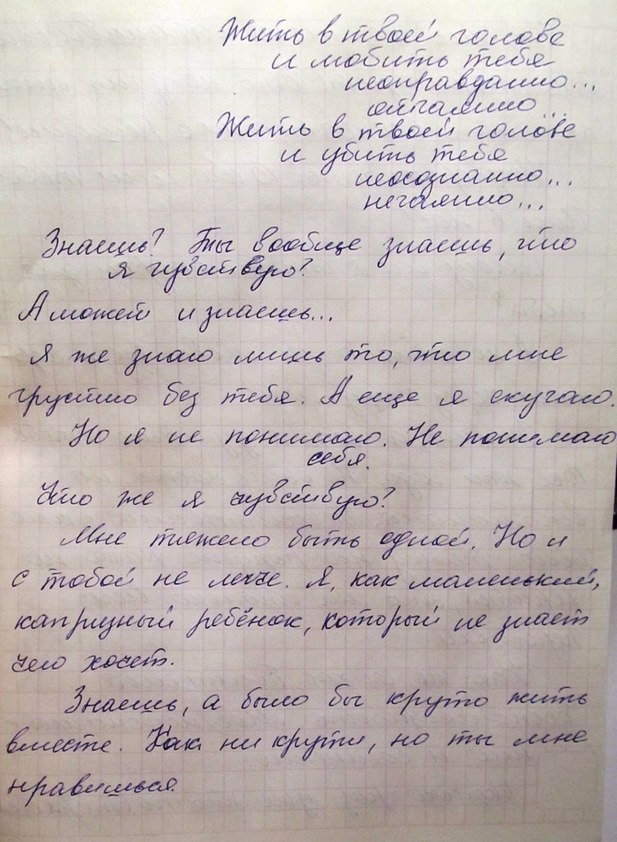 Жить в твоей голове
и любить тебя
неоправданно...
отчаянно...
Жить в твоей голове
и убить тебя
неосознанно...
нечаянно...
Знаешь? Ты вообще знаешь, что
я чувствую?
А может и знаешь...
Я же знаю лишь то, что мне
грустно без тебя. А еще я скучаю.
Но я не понимаю. Не понимаю
себя.
Что же я чувствую?
Мне тяжело быть одной. Но и
с тобой не легче. Я, как маленький,
капризный ребёнок, который не знает
чего хочет.
Знаешь, а было бы круто жить
вместе. Как ни крути, но ты мне
нравишься.